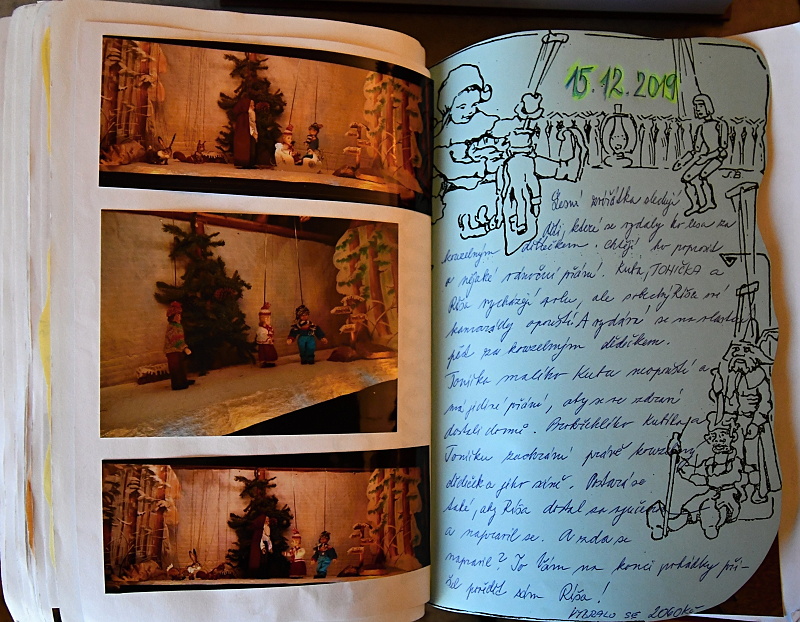 15.12.2019
J.B
Lesní zvířátka sledují
děti, které se vydaly do lesa za
kouzelným dědečkem. Chtějí ho poprosit
o nějaké vánoční přání. Kuba, TONIČKA a
Ríša vycházejí spolu, ale sobecký Ríša své
kamarády opouští. A vydává se na vlastní
pěst za kouzelným dědečkem.
Tonička malého Kubu neopustí a
má jediné přání, aby se ve zdraví
dostali domů. Prokřehlého Kubíka a
Toničku zachrání právě kouzelný
dědeček a jeho
také, aby Ríša dostal za vyučenou
a napravil se. A zda se
napravil? To Vám na konci pohádky při-
šel povědět sám Ríša!
VYBRALO SE 2060Kč